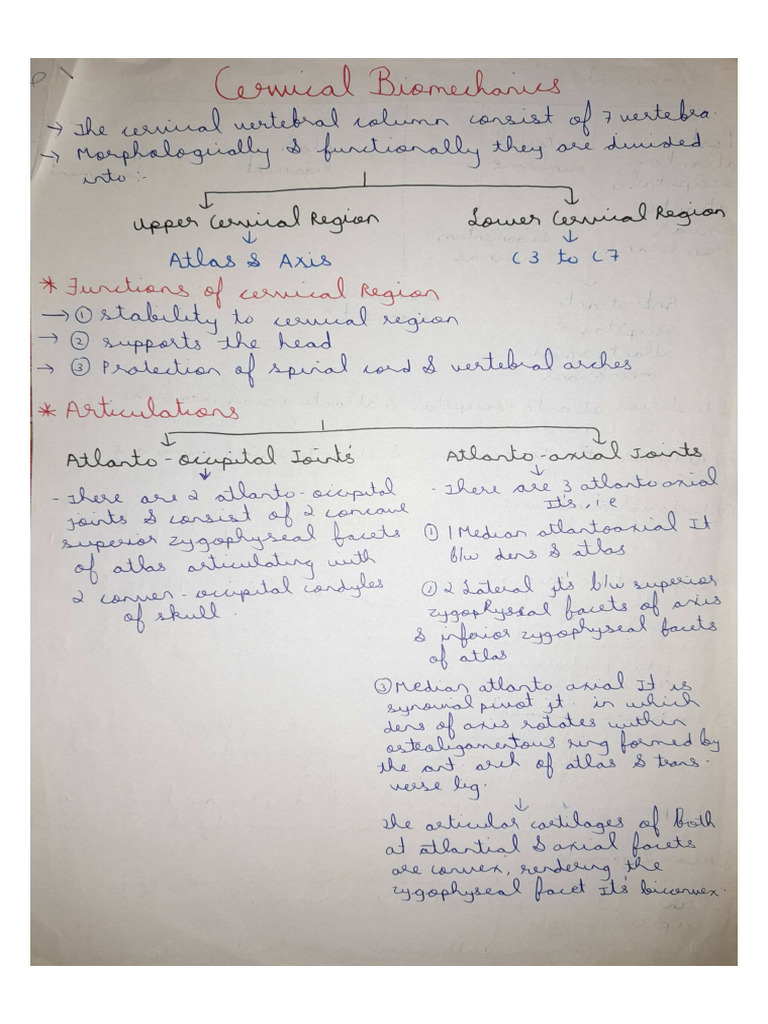 Cervical Biomechanics
→ The cervical vertebral column consist of 7 vertebra.
→ Morphologically & functionally they are divided
into :-
Upper Cervical Region
Lower Cervical Region
Atlas & Axis
C3 to C7
* Functions of cervical Region
→ ① stability to cervical region
→ ② supports the head
→ ③ Protection of spinal cord & vertebral arches
* Articulations
Atlanto-occipital Joints
- There are 2 atlanto-occipital
joints & consist of 2 concave
superior zygophyseal facets
of atlas articulating with
2 convex-occipital condyles
of skull.
Atlanto-axial Joints
- There are 3 atlantoaxial
Jt's, i.e
① 1 Median atlantoaxial Jt
b/w dens & atlas
② 2 Lateral jt's b/w superior
zygophyseal facets of axis
& inferior zygophyseal facets
of atlas
③ Median atlanto axial Jt is
synovial pivot jt in which
dens of axis rotates within
osteoligamentous ring formed by
the ant arch of atlas & trans-
verse lig.
The articular cartilages of both
at atlantial & axial facets
are convex, rendering the
zygophyseal facet Jt's biconvex.